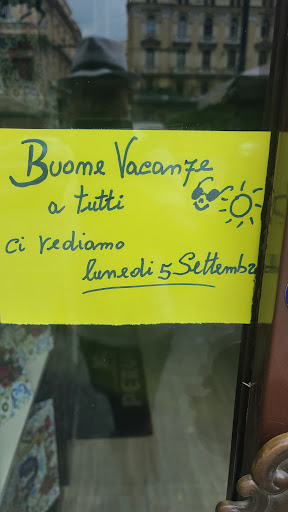 Buone Vacanze
a tutti
ci vediamo
lunedì 5 Settembr